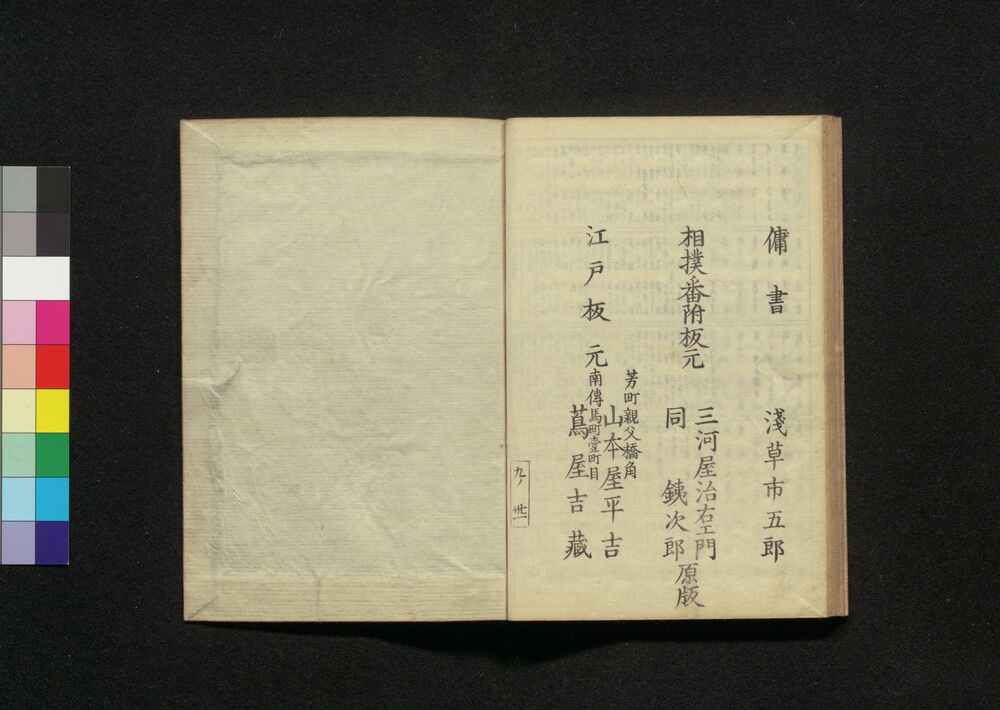 傭書　淺草市五郎
相撲番附板元
三河屋治右エ門
同　銕次郎
原版
江戸板元
芳町親父橋角
山本屋平吉
南傳馬町壹町目
蔦屋吉藏
九ノ卅一